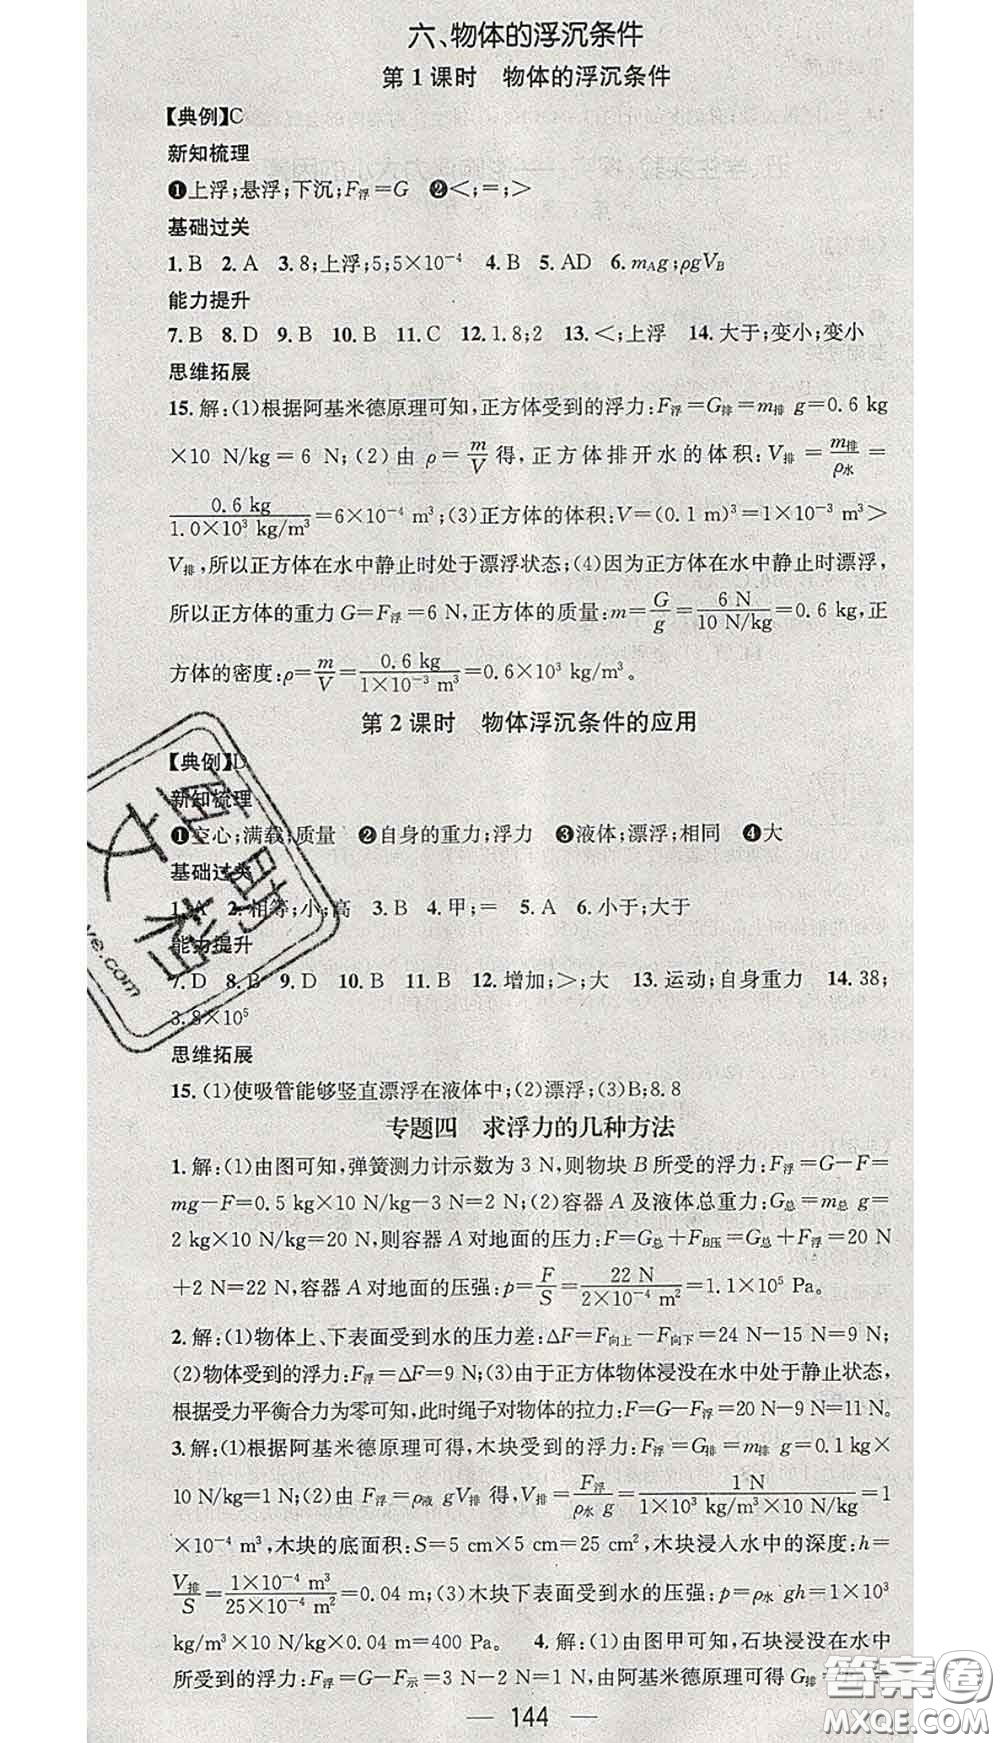 六、物体的浮沉条件
第 1 课时　物体的浮沉条件
【典例】C
新知梳理
❶上浮;悬浮;下沉;F浮=G　❷<;=;>
基础过关
1. B　2. A　3. 8;上浮;5;5×10⁻⁴　4. B　5. AD　6. mAg;ρgVB
能力提升
7. B　8. D　9. B　10. B　11. C　12. 1.8;2　13. <;上浮　14. 大于;变小;变小
思维拓展
15. 解:(1)根据阿基米德原理可知,正方体受到的浮力:F浮=G排=m排 g=0.6 kg
×10 N/kg=6 N;(2)由 ρ=m/V 得,正方体排开水的体积:V排=m排/ρ水=
0.6 kg/1.0×10³ kg/m³=6×10⁻⁴ m³;(3)正方体的体积:V=(0.1 m)³=1×10⁻³ m³>
V排,所以正方体在水中静止时处于漂浮状态;(4)因为正方体在水中静止时漂浮,
所以正方体的重力 G=F浮=6 N,正方体的质量:m=G/g=6 N/10 N/kg=0.6 kg,正
方体的密度:ρ=m/V=0.6 kg/1×10⁻³ m³=0.6×10³ kg/m³。
第 2 课时　物体浮沉条件的应用
【典例】D
新知梳理
❶空心;满载;质量　❷自身的重力;浮力　❸液体;漂浮;相同　❹大
基础过关
1. A　2. 相等;小;高　3. B　4. 甲;=　5. A　6. 小于;大于
能力提升
7. D　8. B　9. D　10. B　11. B　12. 增加;>;大　13. 运动;自身重力　14. 38;
3.8×10⁵
思维拓展
15. (1)使吸管能够竖直漂浮在液体中;(2)漂浮;(3)B;8.8
专题四　求浮力的几种方法
1. 解:(1)由图可知,弹簧测力计示数为 3 N,则物块 B 所受的浮力:F浮=G−F=
mg−F=0.5 kg×10 N/kg−3 N=2 N;(2)容器 A 及液体总重力:G总=m总 g=
2 kg×10 N/kg=20 N,则容器 A 对地面的压力:F=G总+FB压=G总+F浮=20 N
+2 N=22 N,容器 A 对地面的压强:p=F/S=22 N/2×10⁻⁴ m²=1.1×10⁵ Pa。
2. 解:(1)物体上、下表面受到水的压力差:△F=F向上−F向下=24 N−15 N=9 N;
(2)物体受到的浮力:F浮=△F=9 N;(3)由于正方体物体浸没在水中处于静止状态,
根据受力平衡合力为零可知,此时绳子对物体的拉力:F=G−F浮=20 N−9 N=11 N。
3. 解:(1)根据阿基米德原理可得,木块受到的浮力:F浮=G排=m排 g=0.1 kg×
10 N/kg=1 N;(2)由 F浮=ρ液 gV排 得,V排=F浮/ρ水 g=1 N/1×10³ kg/m³×10 N/kg=1
×10⁻⁴ m³,木块的底面积:S=5 cm×5 cm=25 cm²,木块浸入水中的深度:h=
V排/S=1×10⁻⁴ m³/25×10⁻⁴ m²=0.04 m;(3)木块下表面受到水的压强:p=ρ水 gh=1×10³
kg/m³×10 N/kg×0.04 m=400 Pa。　4. 解:(1)由图甲可知,石块浸没在水中
所受到的浮力:F浮=G−F示=3 N−2 N=1 N,由阿基米德原理可得 G排=
— 144 —
答案圈
MXQE.COM